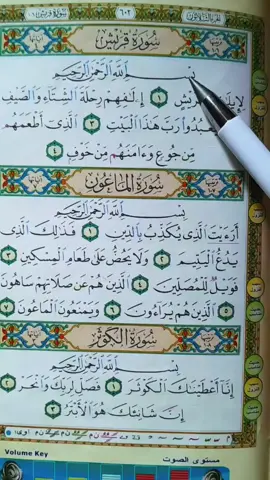 الجزء الثلاثون
٦٠٢
سورة قريش
بسم الله الرحمن الرحيم
قريش ١ إۦلافهم رحلة الشتاء والصيف
رب هذا البيت ٣ الذي أطعمهم
من جوع وءامنهم من خوف ٤
سورة الماعون
بسم الله الرحمن الرحيم
أرءيت الذي يكذب بالدين ١ فذلك الذي
يدع اليتيم ٢ ولا يحض على طعام المسكين ٣
فويل للمصلين ٤ الذين هم عن صلاتهم ساهون
٥ الذين هم يراءون ٦ ويمنعون الماعون ٧
سورة الكوثر
بسم الله الرحمن الرحيم
إنا أعطيناك الكوثر ١ فصل لربك وانحر ٢
إن شانئك هو الأبتر ٣
Volume Key
مستوى الصوت